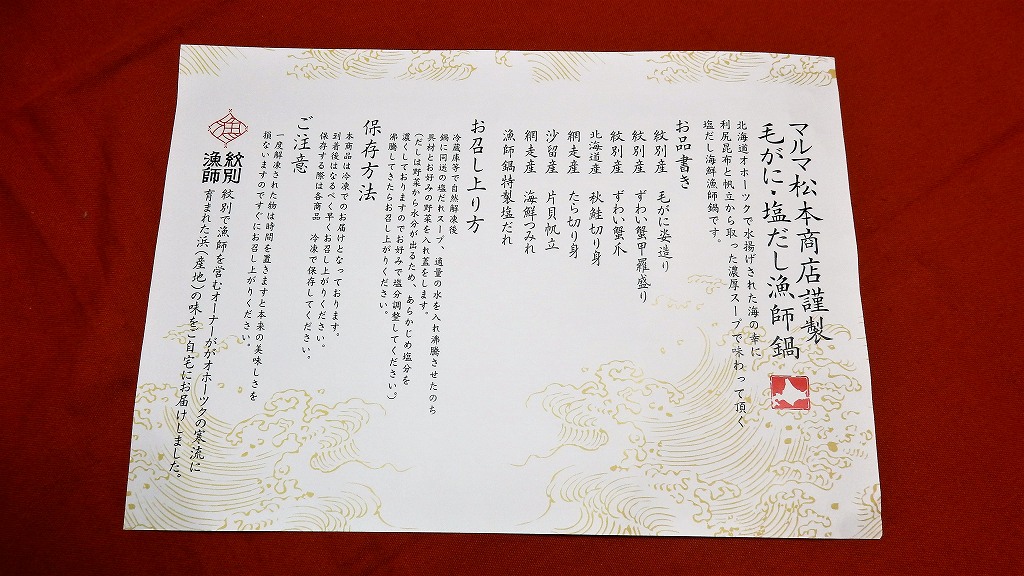 マルマ松本商店謹製
毛がに・塩だし漁師鍋
北海道オホーツクで水揚げされた海の幸に
利尻昆布と帆立から取った濃厚スープで味わって頂く
塩だし海鮮漁師鍋です。
お品書き
紋別産 毛がに姿造り
紋別産 ずわい蟹甲羅盛り
紋別産 ずわい蟹爪
北海道産 秋鮭切り身
網走産 たら切り身
沙留産 片貝帆立
網走産 海鮮つみれ
漁師鍋特製塩だれ
お召し上り方
冷蔵庫等で自然解凍後
鍋に同送の塩だれスープ、適量の水を入れ沸騰させたのち
具材とお好みの野菜を入れ蓋をします。
(だしは野菜から水分が出るため、あらかじめ塩分を
濃くしておりますのでお好みで塩分調整してください。)
沸騰してきたらお召し上がりください。
保存方法
本商品は冷凍でのお届けとなっております。
到着後はなるべく早くお召し上がりください。
保存する際は各商品 冷凍で保存してください。
ご注意
一度解凍された物は時間を置きますと本来の美味しさを
損ないますのですぐにお召し上がりください。
漁
紋別
漁師
紋別で漁師を営むオーナーががオホーツクの寒流に
育まれた浜(産地)の味をご自宅にお届けしました。